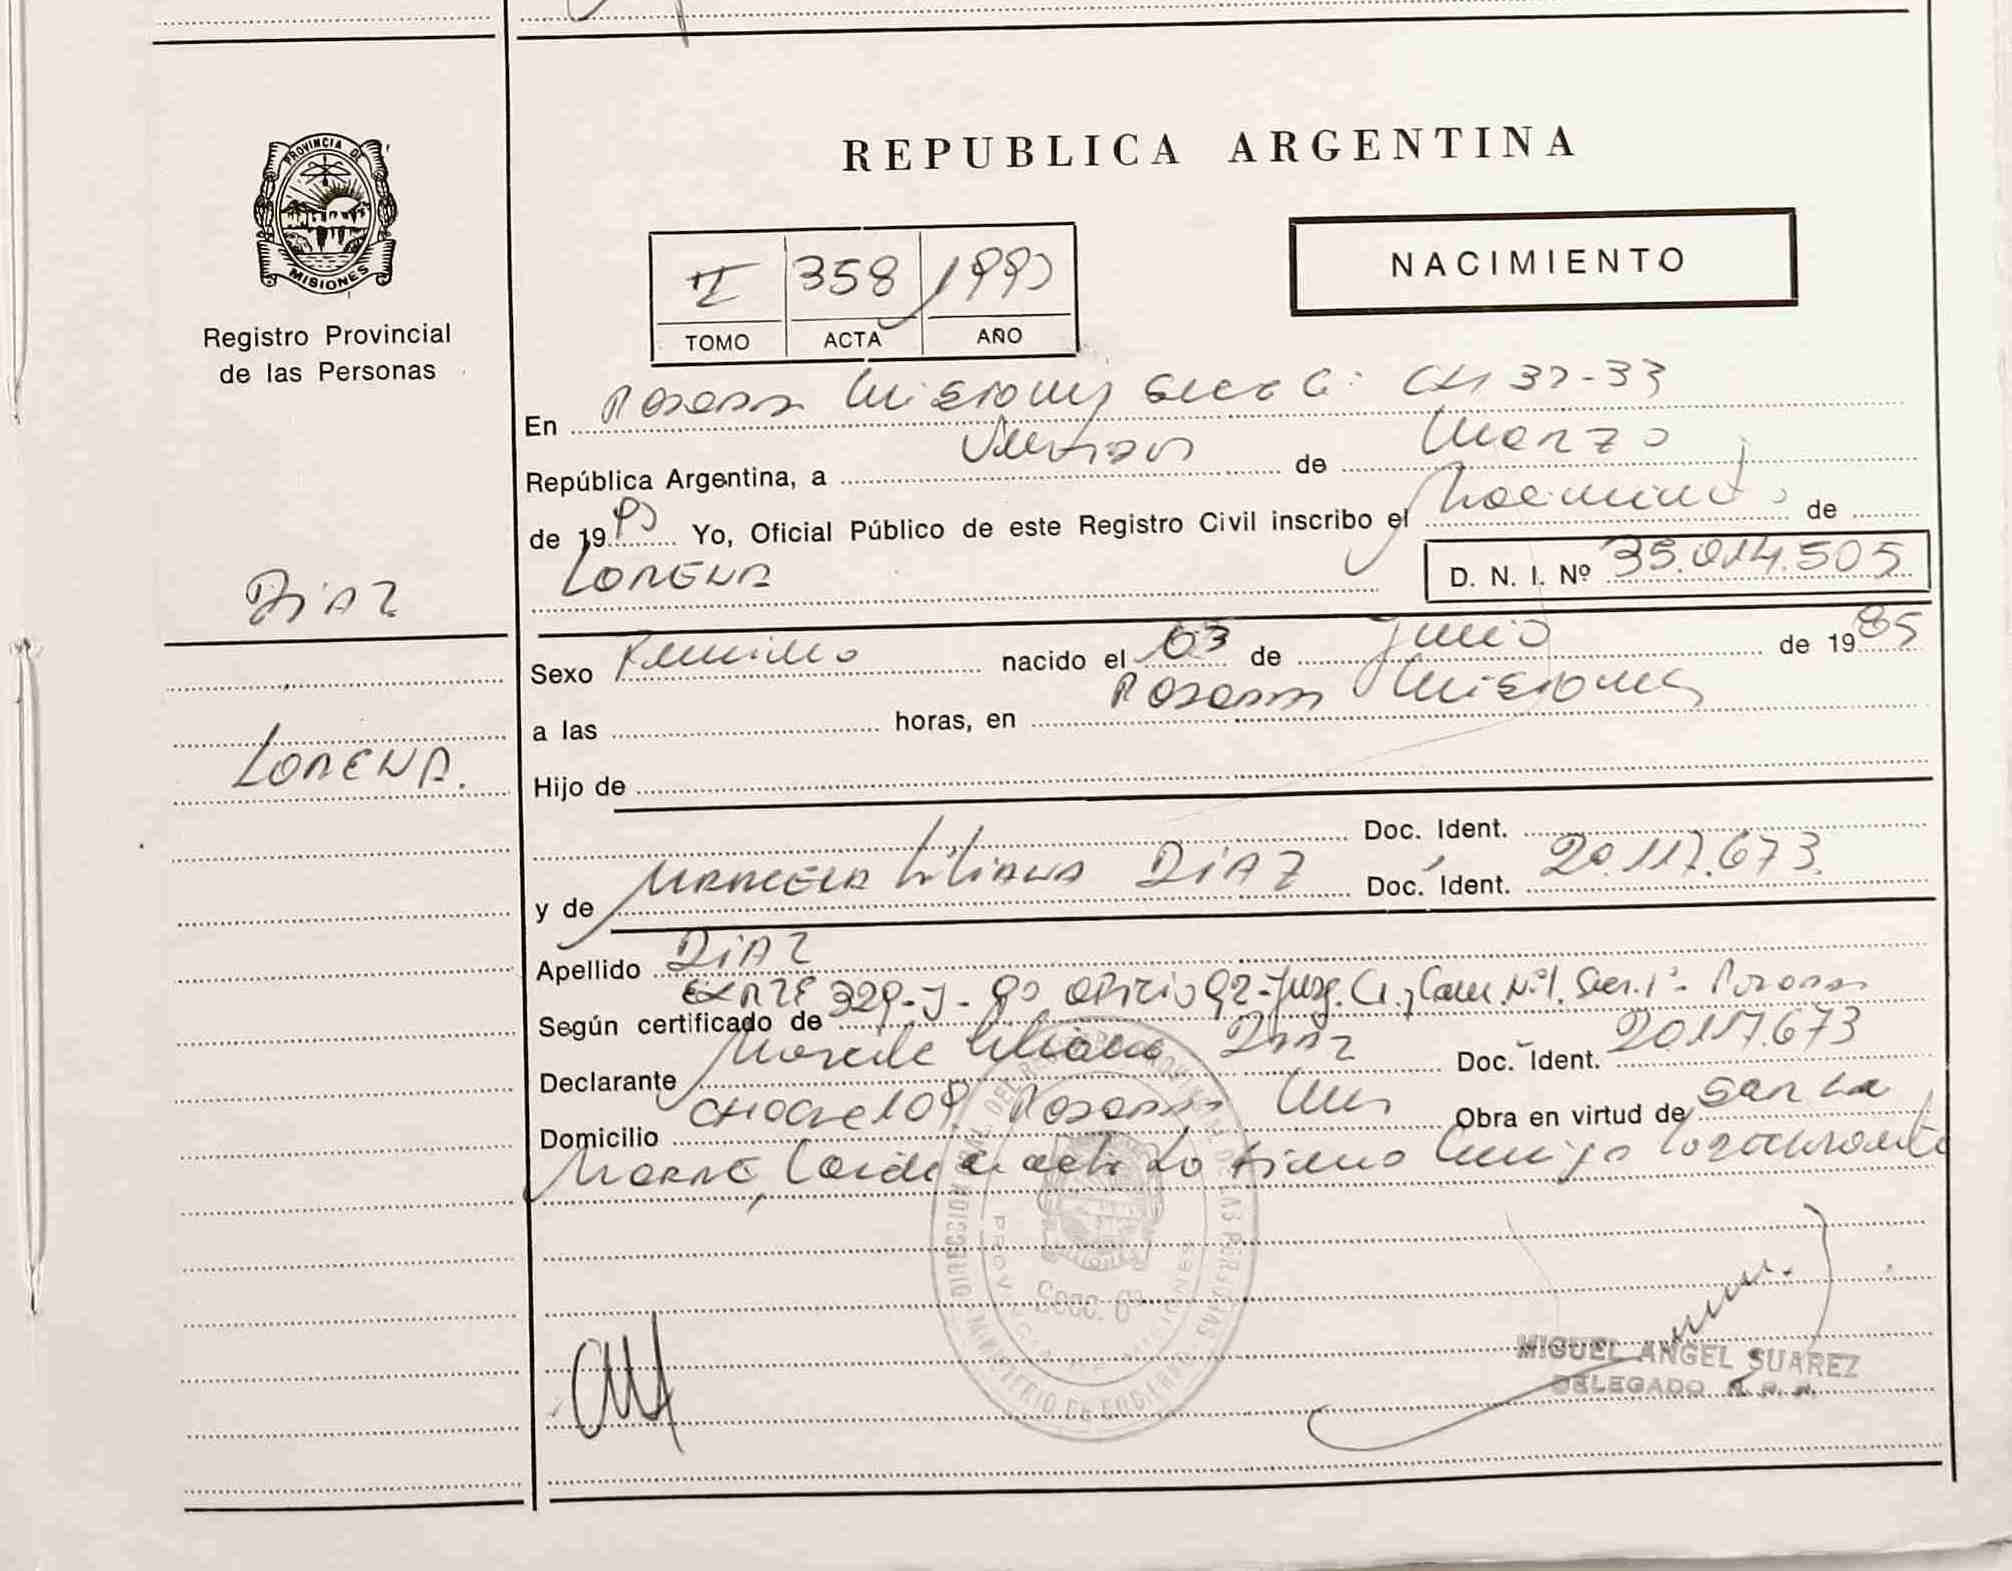 PROVINCIA DE
MISIONES
Registro Provincial
de las Personas
REPUBLICA ARGENTINA
I 358 1990
TOMO ACTA AÑO
NACIMIENTO
En Posadas Misiones Secc 6: CH 32-33
República Argentina, a de Marzo
de 1990 Yo, Oficial Público de este Registro Civil inscribo el Nacimiento de
LORENA D. N. I. Nº 35.014.505
DIAZ
Sexo Femenino nacido el 03 de Junio de 1985
a las horas, en Posadas Misiones
LORENA.
Hijo de
Doc. Ident.
y de MARCELA Liliana DIAZ Doc. Ident. 20.117.673.
Apellido DIAZ
Según certificado de EXPTE 329-J-90 OFICIO 92-Juzg. Ci. y Com. Nº1. Secr. 1ª- Posadas
Declarante Marcela Liliana Diaz Doc. Ident. 20.117.673
Domicilio Posadas Mns Obra en virtud de ser La
Madre, Leida el acta La firma Conmigo la declarante
DIRECCION DEL REGISTRO DE LAS PERSONAS
PROVINCIA DE MISIONES
MINISTERIO DE GOBIERNO
SECC. 6ª
MIGUEL ANGEL SUAREZ
DELEGADO